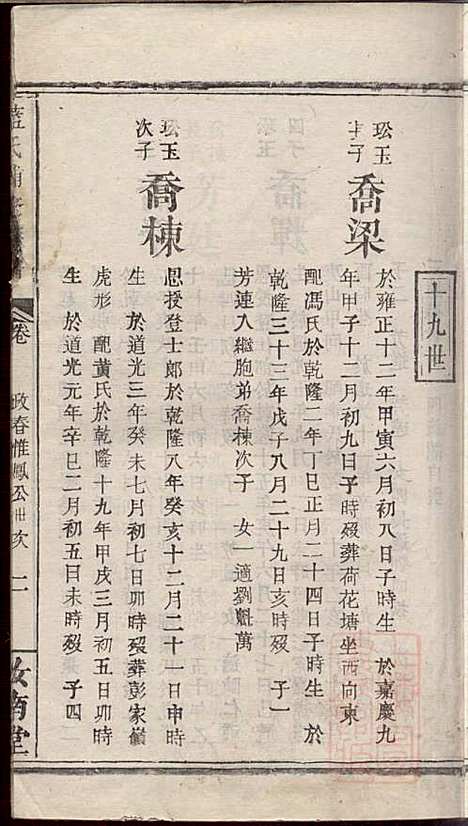 二十九世
玜玉
長子
喬梁
於雍正十二年甲寅六月初八日子時生 於嘉慶九
年甲子十二月初九日子時歿葬荷花塘坐西向東
配馮氏於乾隆二年丁巳正月二十四日子時生 於
乾隆三十三年戊子八月二十九日亥時歿 子一
芳連入繼胞弟喬棟次子 女一適劉魁萬
玜玉
次子
喬棟
恩授登士郎於乾隆八年癸亥十二月二十一日申時
生 於道光三年癸未七月初七日卯時歿葬彭家嶺
虎形 配黃氏於乾隆十九年甲戌三月初五日卯時
生 於道光元年辛巳二月初五日未時歿 子四
藍氏 修
卷 政春惟鳳公世次 二
汝南堂